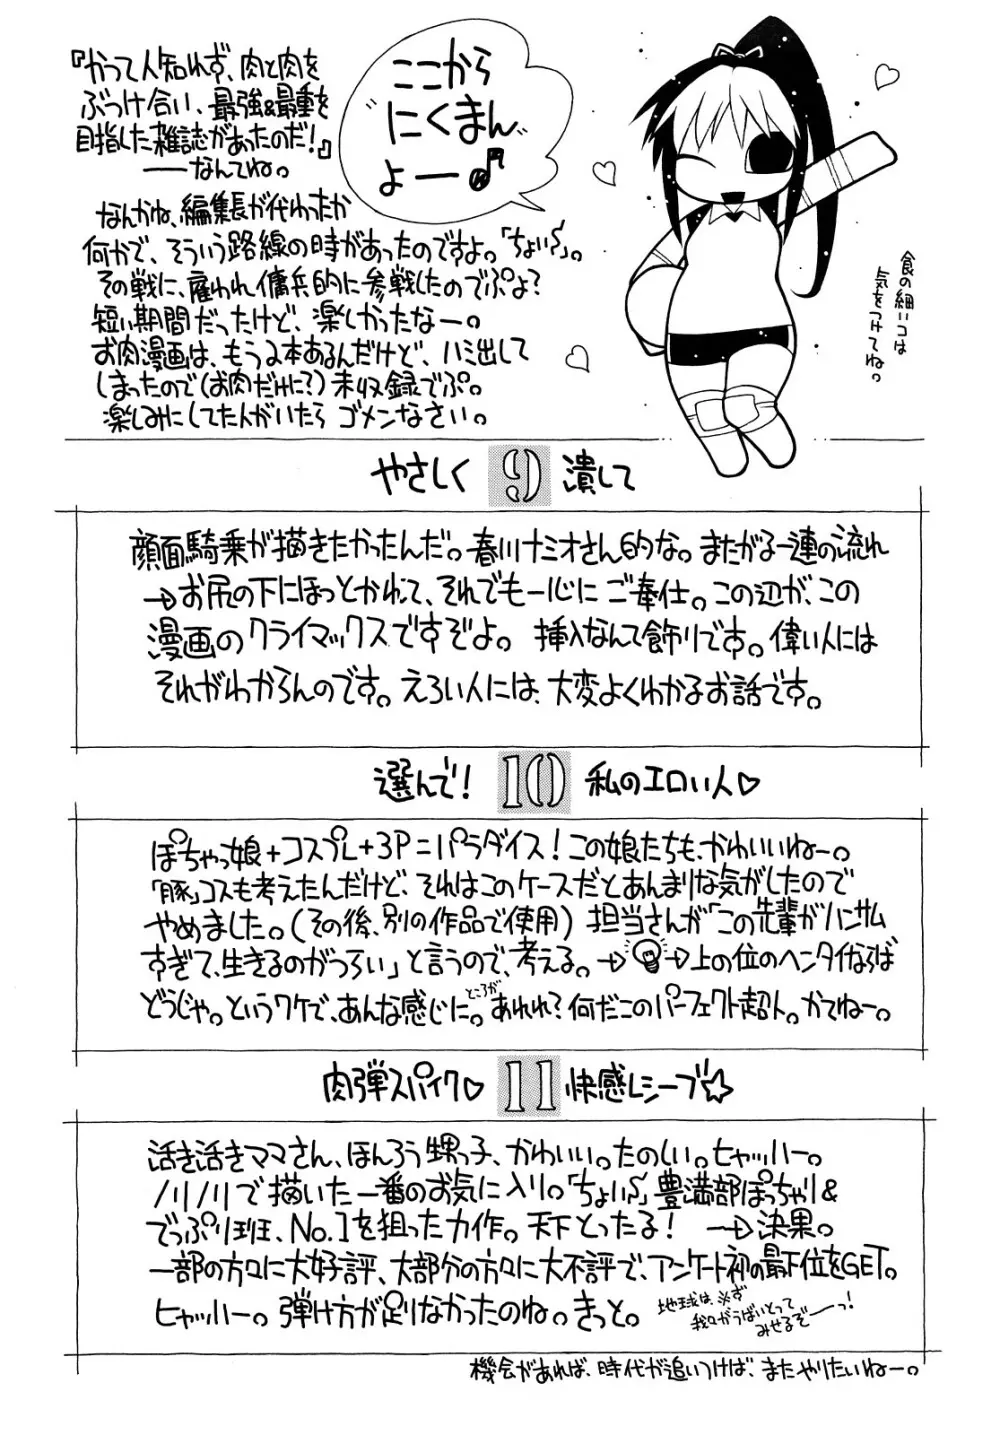 『かって人知れず、肉と肉を
ぶつけ合い、最強&最重を
目指した雑誌があったのだ!』
――なんてね。
ここから
"にくまん"
よー♪
なんかね、編集長が代わったか
何かで、そういう路線の時があったのですよ。「ちょい〜」。
その戦に、雇われ傭兵的に参戦したのでぷよ?
短い期間だったけど、楽しかったなー。
お肉漫画は、もう2本あるんだけど、ハミ出して
しまったので(お肉だけに?)未収録でぷ。
楽しみにしてた人がいたら ゴメンなさい。
食の細いコは
気をつけてね。
やさしく 9 潰して
顔面騎乗が描きたかったんだ。春川ナミオさん的な。またがる一連の流れ
→お尻の下にほっとかれて、それでも一心に ご奉仕。この辺が、この
漫画のクライマックスですぞよ。 挿入なんて飾りです。偉い人には
それがわからんのです。えろい人には、大変よくわかるお話です。
選んで! 10 私のエロい人♡
ぽちゃっ娘+コスプレ+3P=パラダイス!この娘たちも、かわいいねー。
「豚」コスも考えたんだけど、それはこのケースだとあんまりな気がしたので
やめました。(その後、別の作品で使用) 担当さんが「この先輩がハンサム
すぎて、生きるのがつらい」と言うので、考える。→💡→上の位のヘンタイならば
どうじゃ。というワケで、あんな感じに。ところがあれれ?何だこのパーフェクト超人。かてねー。
肉弾スパイク♡ 11 快感レシーブ☆
活き活きママさん、ほんろう甥っ子、かわいい。たのしい。ヒャッハー。
ノリノリで描いた一番のお気に入り。「ちょい〜」豊満部ぽっちゃり&
でっぷり班、No.1を狙った力作。天下とったる! →決果。
一部の方々に大好評、大部分の方々に大不評で、アンケート初の最下位をGET。
ヒャッハー。弾け方が足りなかったのね。きっと。
地球は、必ず
我々がうばいとって
みせるぞーっ!
機会があれば、時代が追いつけば、またやりたいねー。